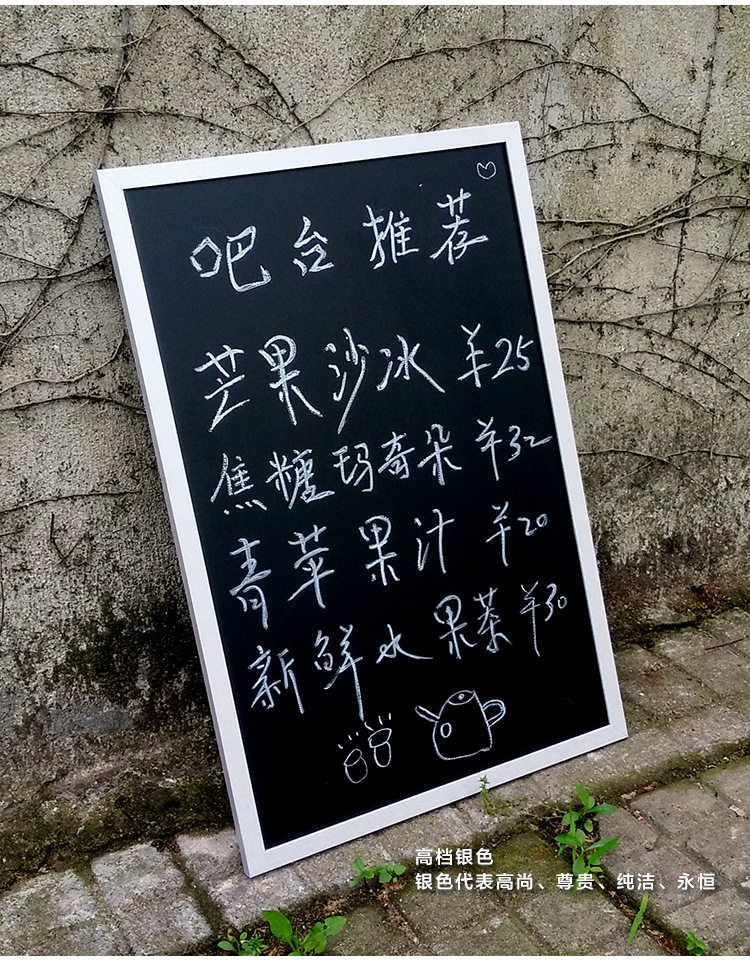 吧台推荐
芒果沙冰 ¥25
焦糖玛奇朵 ¥32
青苹果汁 ¥20
新鲜水果茶 ¥30
高档银色
银色代表高尚、尊贵、纯洁、永恒